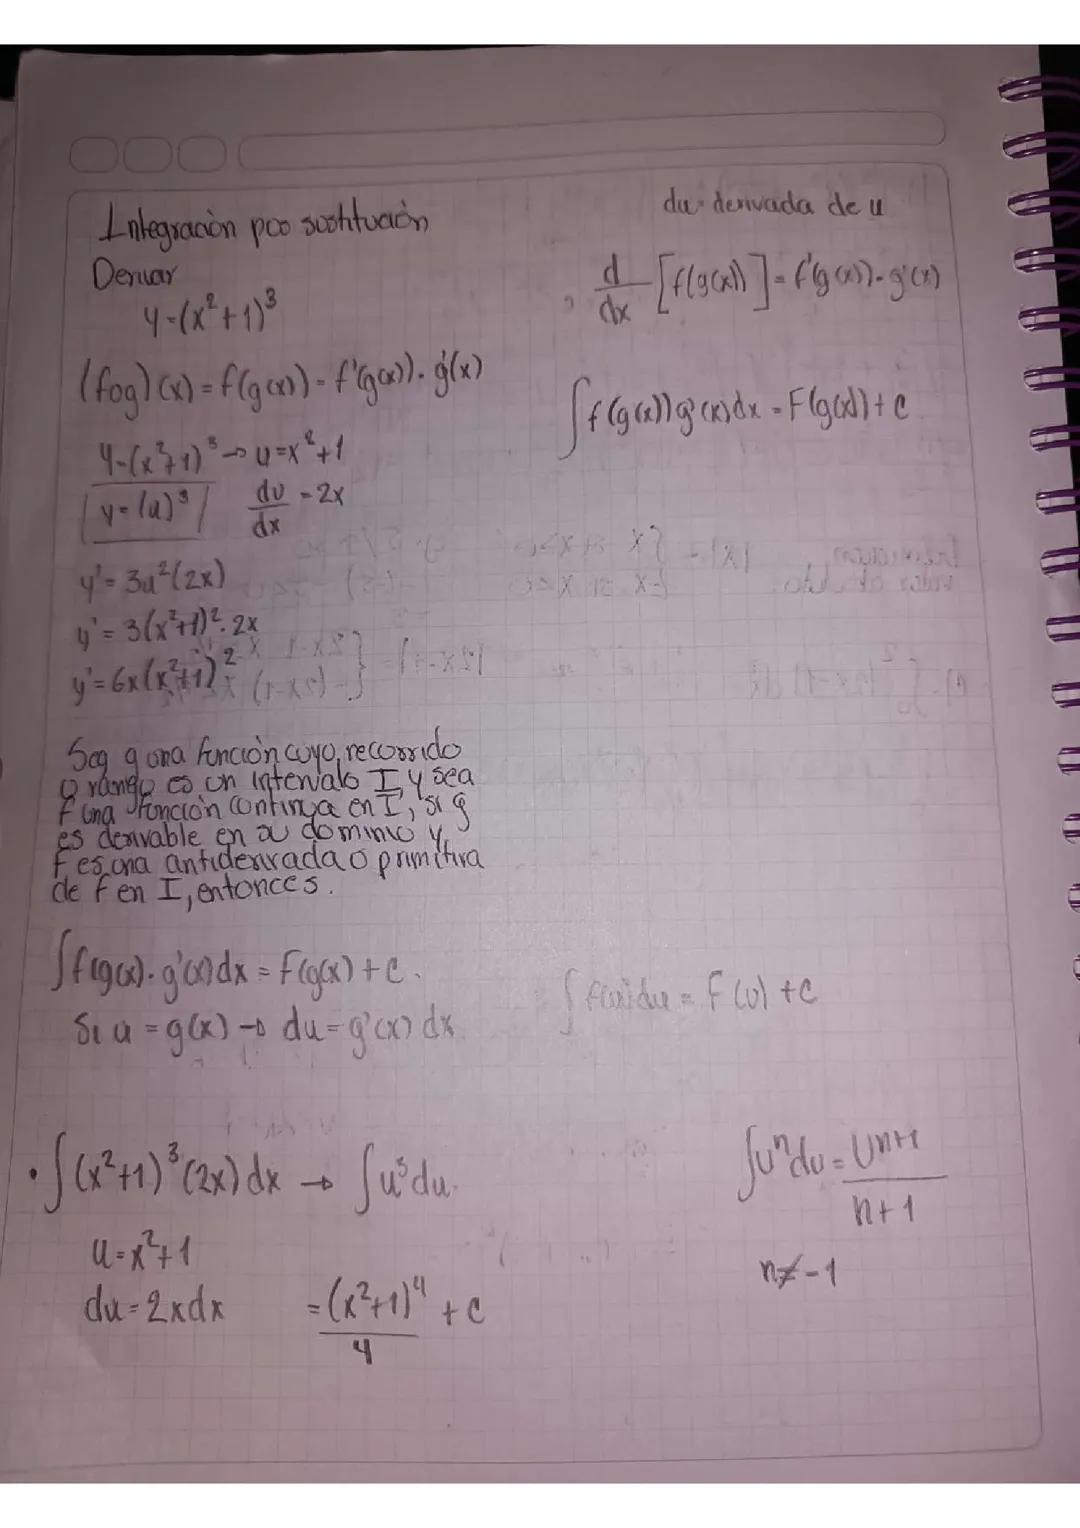 Integración poo sustitución
du = derivada de u
Derivar
y=(x²+1)³
d/dx [f(g(x))] = f'(g(x))·g'(x)
(fog)(x) = f(g(x)) = f'(g(x))·g'(x)
∫f(g(x))g'(x)dx = F(g(x))+c
y=(x²+1)³→u=x²+1
y=(u)³ du/dx =2x
y'=3u²(2x)
y'=3(x²+1)²·2x
y'=6x(x²+1)²
Sea g una función cuyo recorrido
o rango es un intervalo I, y sea
f una función continua en I, si g
es derivable en su dominio y
F es una antiderivada o primitiva
de f en I, entonces.
∫f(g(x)·g'(x)dx = F(g(x)+c.
∫f(u)du = F(u)+c
Si u = g(x) → du = g'(x) dx.
• ∫(x²+1)³(2x)dx → ∫u³du.
∫uⁿdu = Un+1/n+1
u=x²+1
n≠-1
du=2xdx =(x²+1)⁴/4 + c